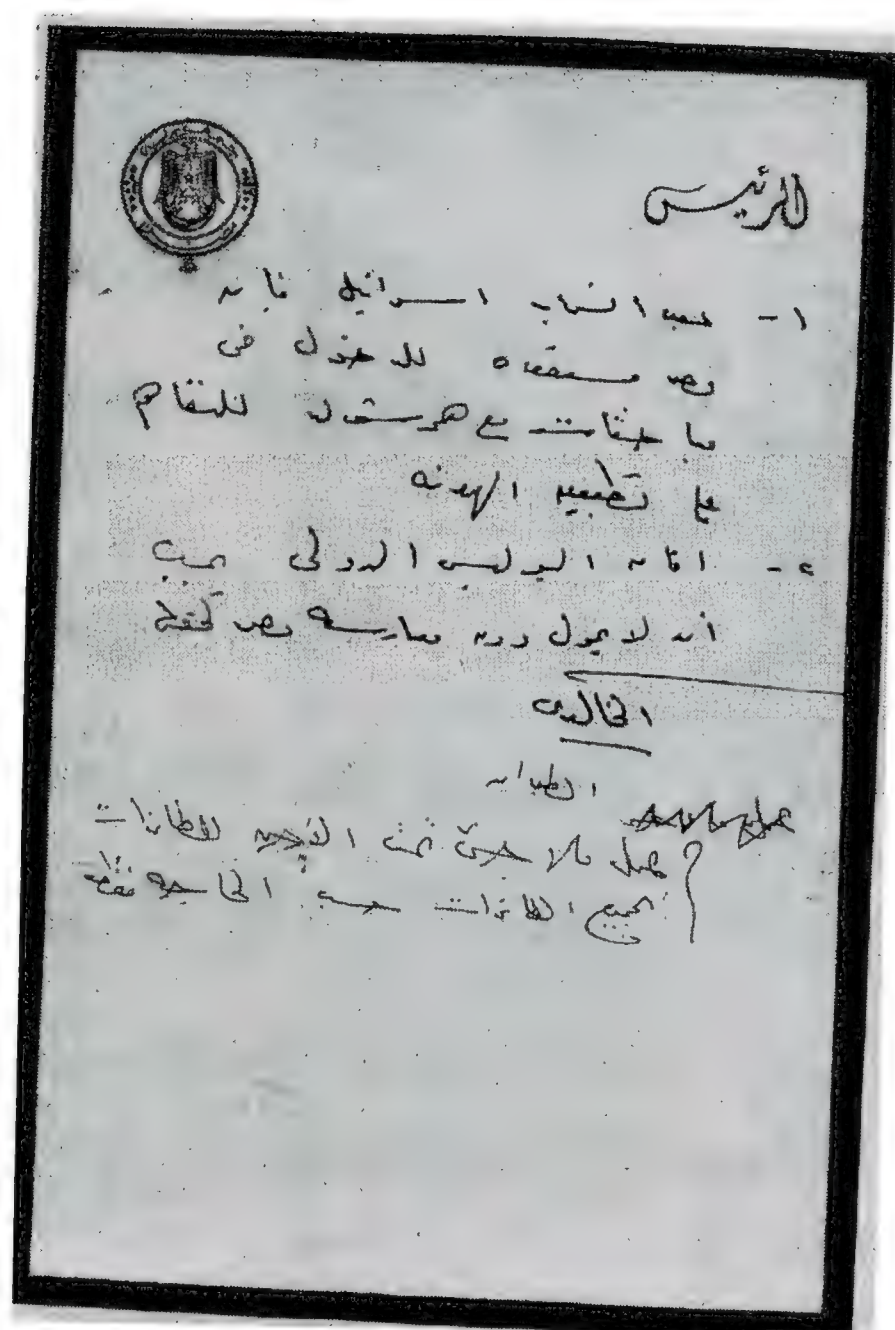 الرئيس
١- بعد انسحاب اسرائيل فانه
مصر مستعده للدخول فى
مباحثات مع همرشولد للتفاهم
على تطبيق الهدنه
٢- اقامه البوليس الدولى يجب
أن لا يحول دون ممارسه مصر لحقوقها
الخالدى
الطيران
عمل ملاجئ تحت الأرض للطائرات
لجميع الطائرات حسب الحاجه فقط